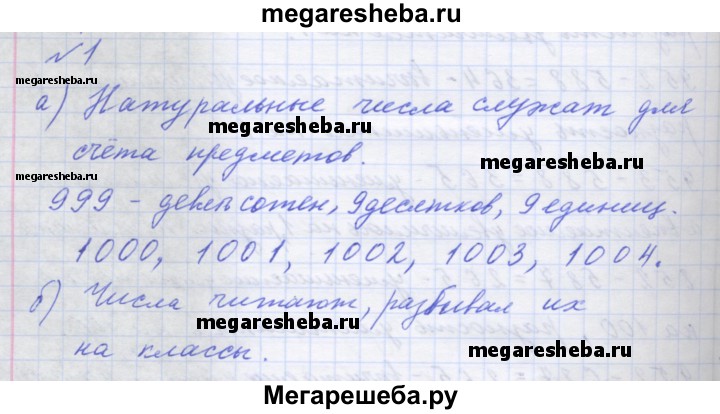 megaresheba.ru
№1
megaresheba.ru
а) Натуральные числа служат для
megaresheba.ru
счёта предметов.
megaresheba.ru
megaresheba.ru
999 - девять сотен, 9 десятков, 9 единиц.
1000, 1001, 1002, 1003, 1004.
б) Числа читают, разбивая их
megaresheba.ru
на классы.
megaresheba.ru
Мегарешеба.ру